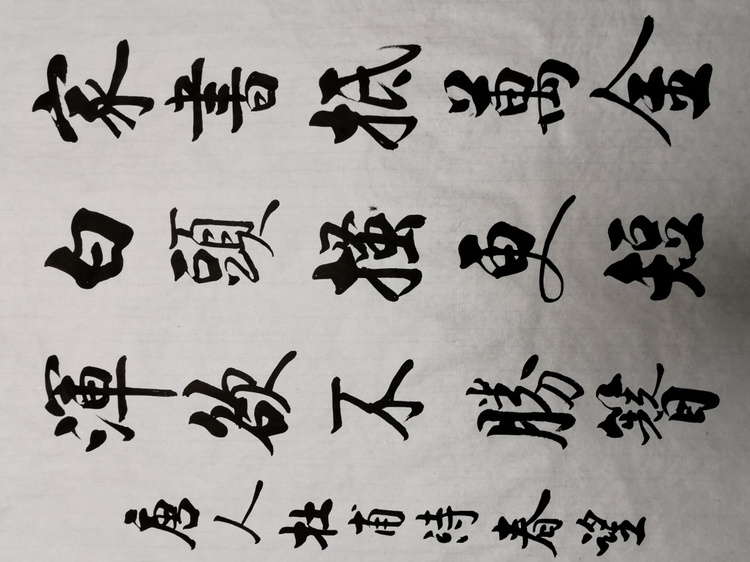 家書抵萬金
白頭搔更短
渾欲不勝簪
唐人杜甫詩春望